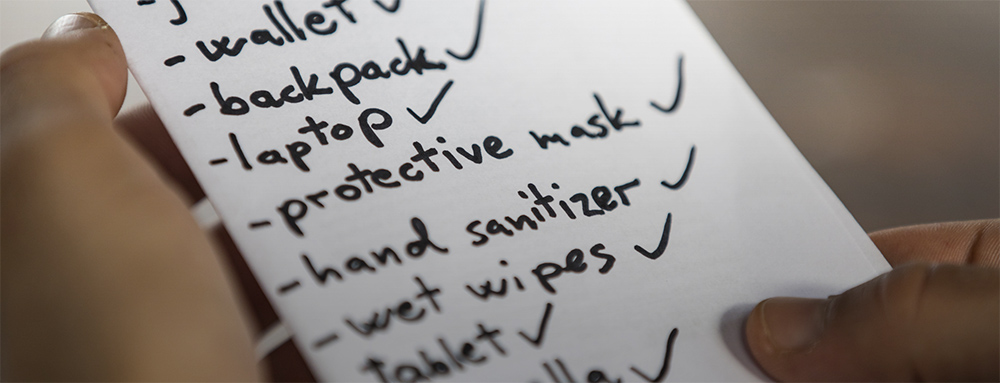 - wallet ✓
- backpack ✓
- laptop ✓
- protective mask ✓
- hand sanitizer ✓
- wet wipes ✓
tablet ✓